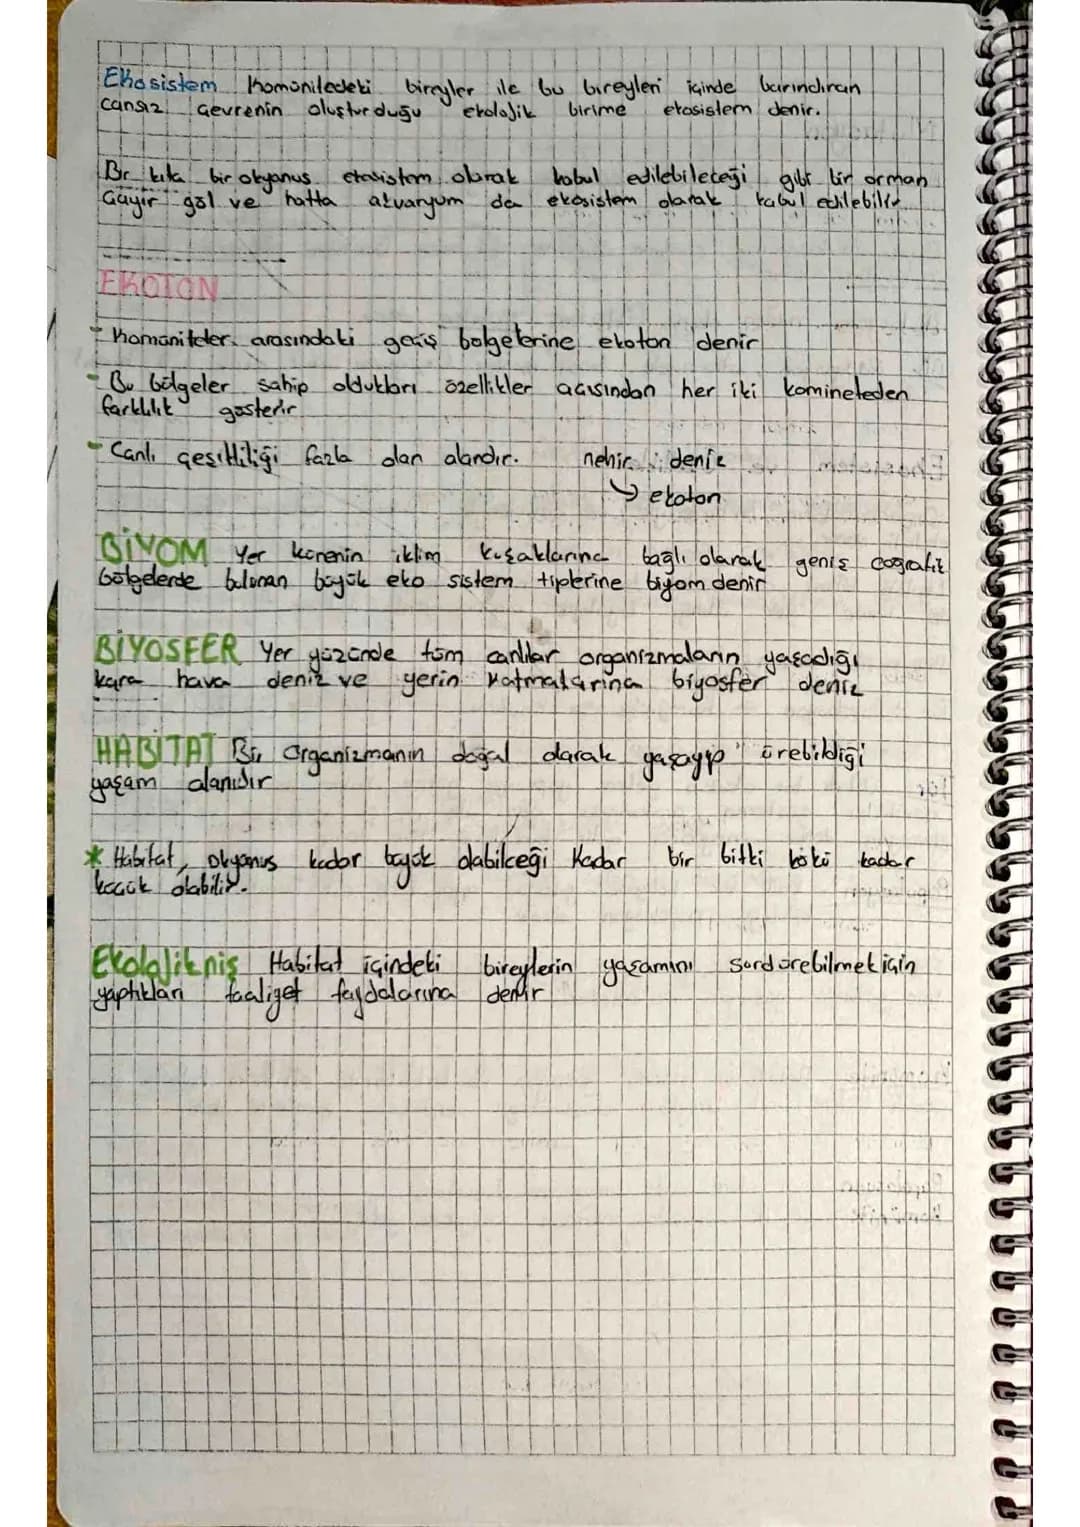 Ekosistem Komünitedeki bireyler ile bu bireyleri içinde barındıran
cansız çevrenin oluşturduğu ekolojik birime ekosistem denir.
Bir kıta bir okyanus ekosistem olarak kabul edilebileceği gibi bir orman
Çayır göl ve hatta akvaryum da ekosistem olarak kabul edilebilir
EKOTON
- Komüniteler arasındaki geçiş bölgelerine ekoton denir
- Bu bölgeler sahip oldukları özellikler açısından her iki komineteden
farklılık gösterir
- Canlı çeşitliliği fazla olan alandır. nehir deniz
↳ ekoton
BİYOM Yer kürenin iklim kuşaklarına bağlı olarak geniş coğrafik
bölgelerde bulunan büyük eko sistem tiplerine biyom denir
BİYOSFER Yer yüzünde tüm canlılar organizmaların yaşadığı
kara hava deniz ve yerin katmalarına biyosfer denir
HABİTAT Bir Organizmanın doğal olarak yaşayıp üreblidiği
yaşam alanıdır
* Habitat, Okyanus kadar büyük olabilceği Kadar bir bitki kökü kadar
küçük olabilir.
Ekolojik niş Habitat içindeki bireylerin yaşamını sürdürebilmek için
yaptıkları faaliyet faydalarına denir